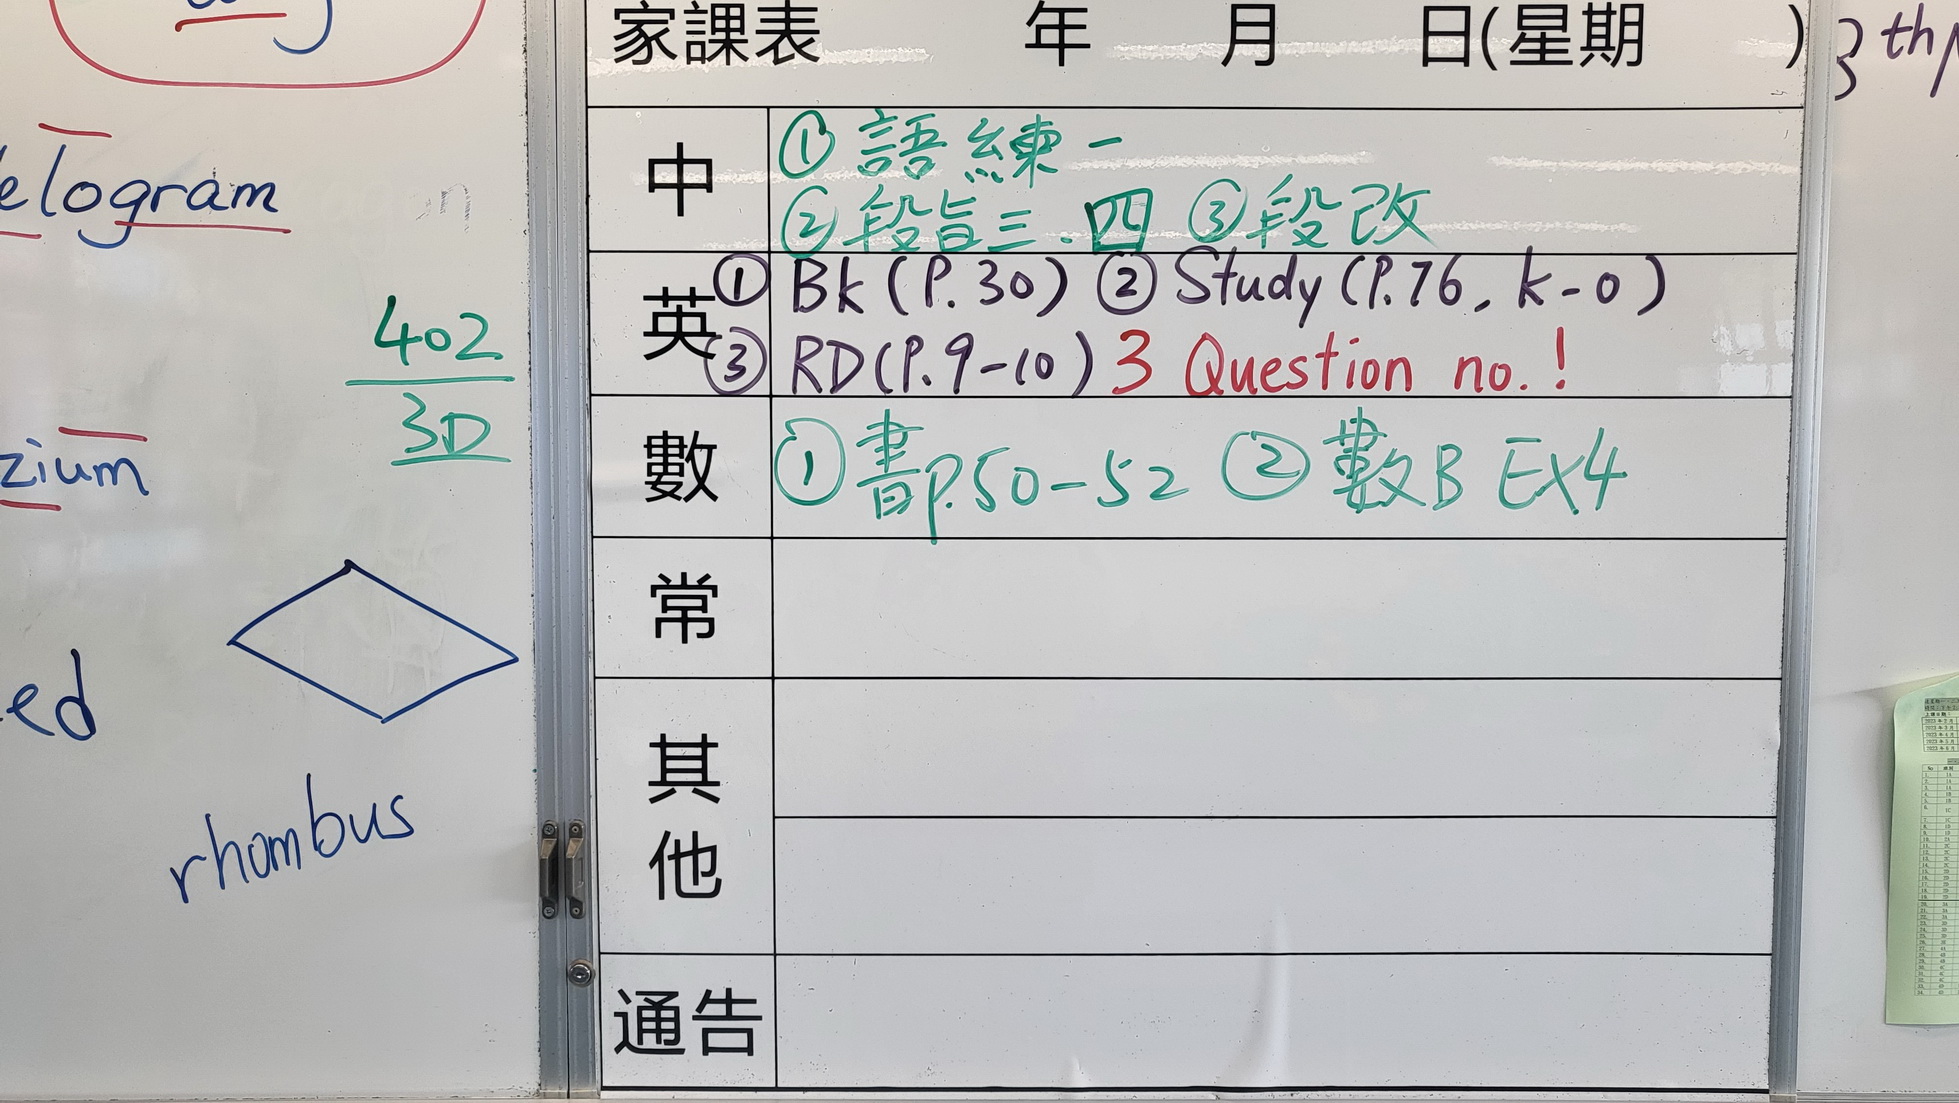 elogram
402
3D
zium
ed
rhombus
家課表 年 月 日(星期 )
中
① 語練一
② 段旨三.四 ③ 段改
英
① Bk (P.30) ② Study (P.76, k-o)
③ RD (P.9-10) 3 Question no.!
數
① 書p.50-52 ② 數B EX4
常
其他
通告
3th